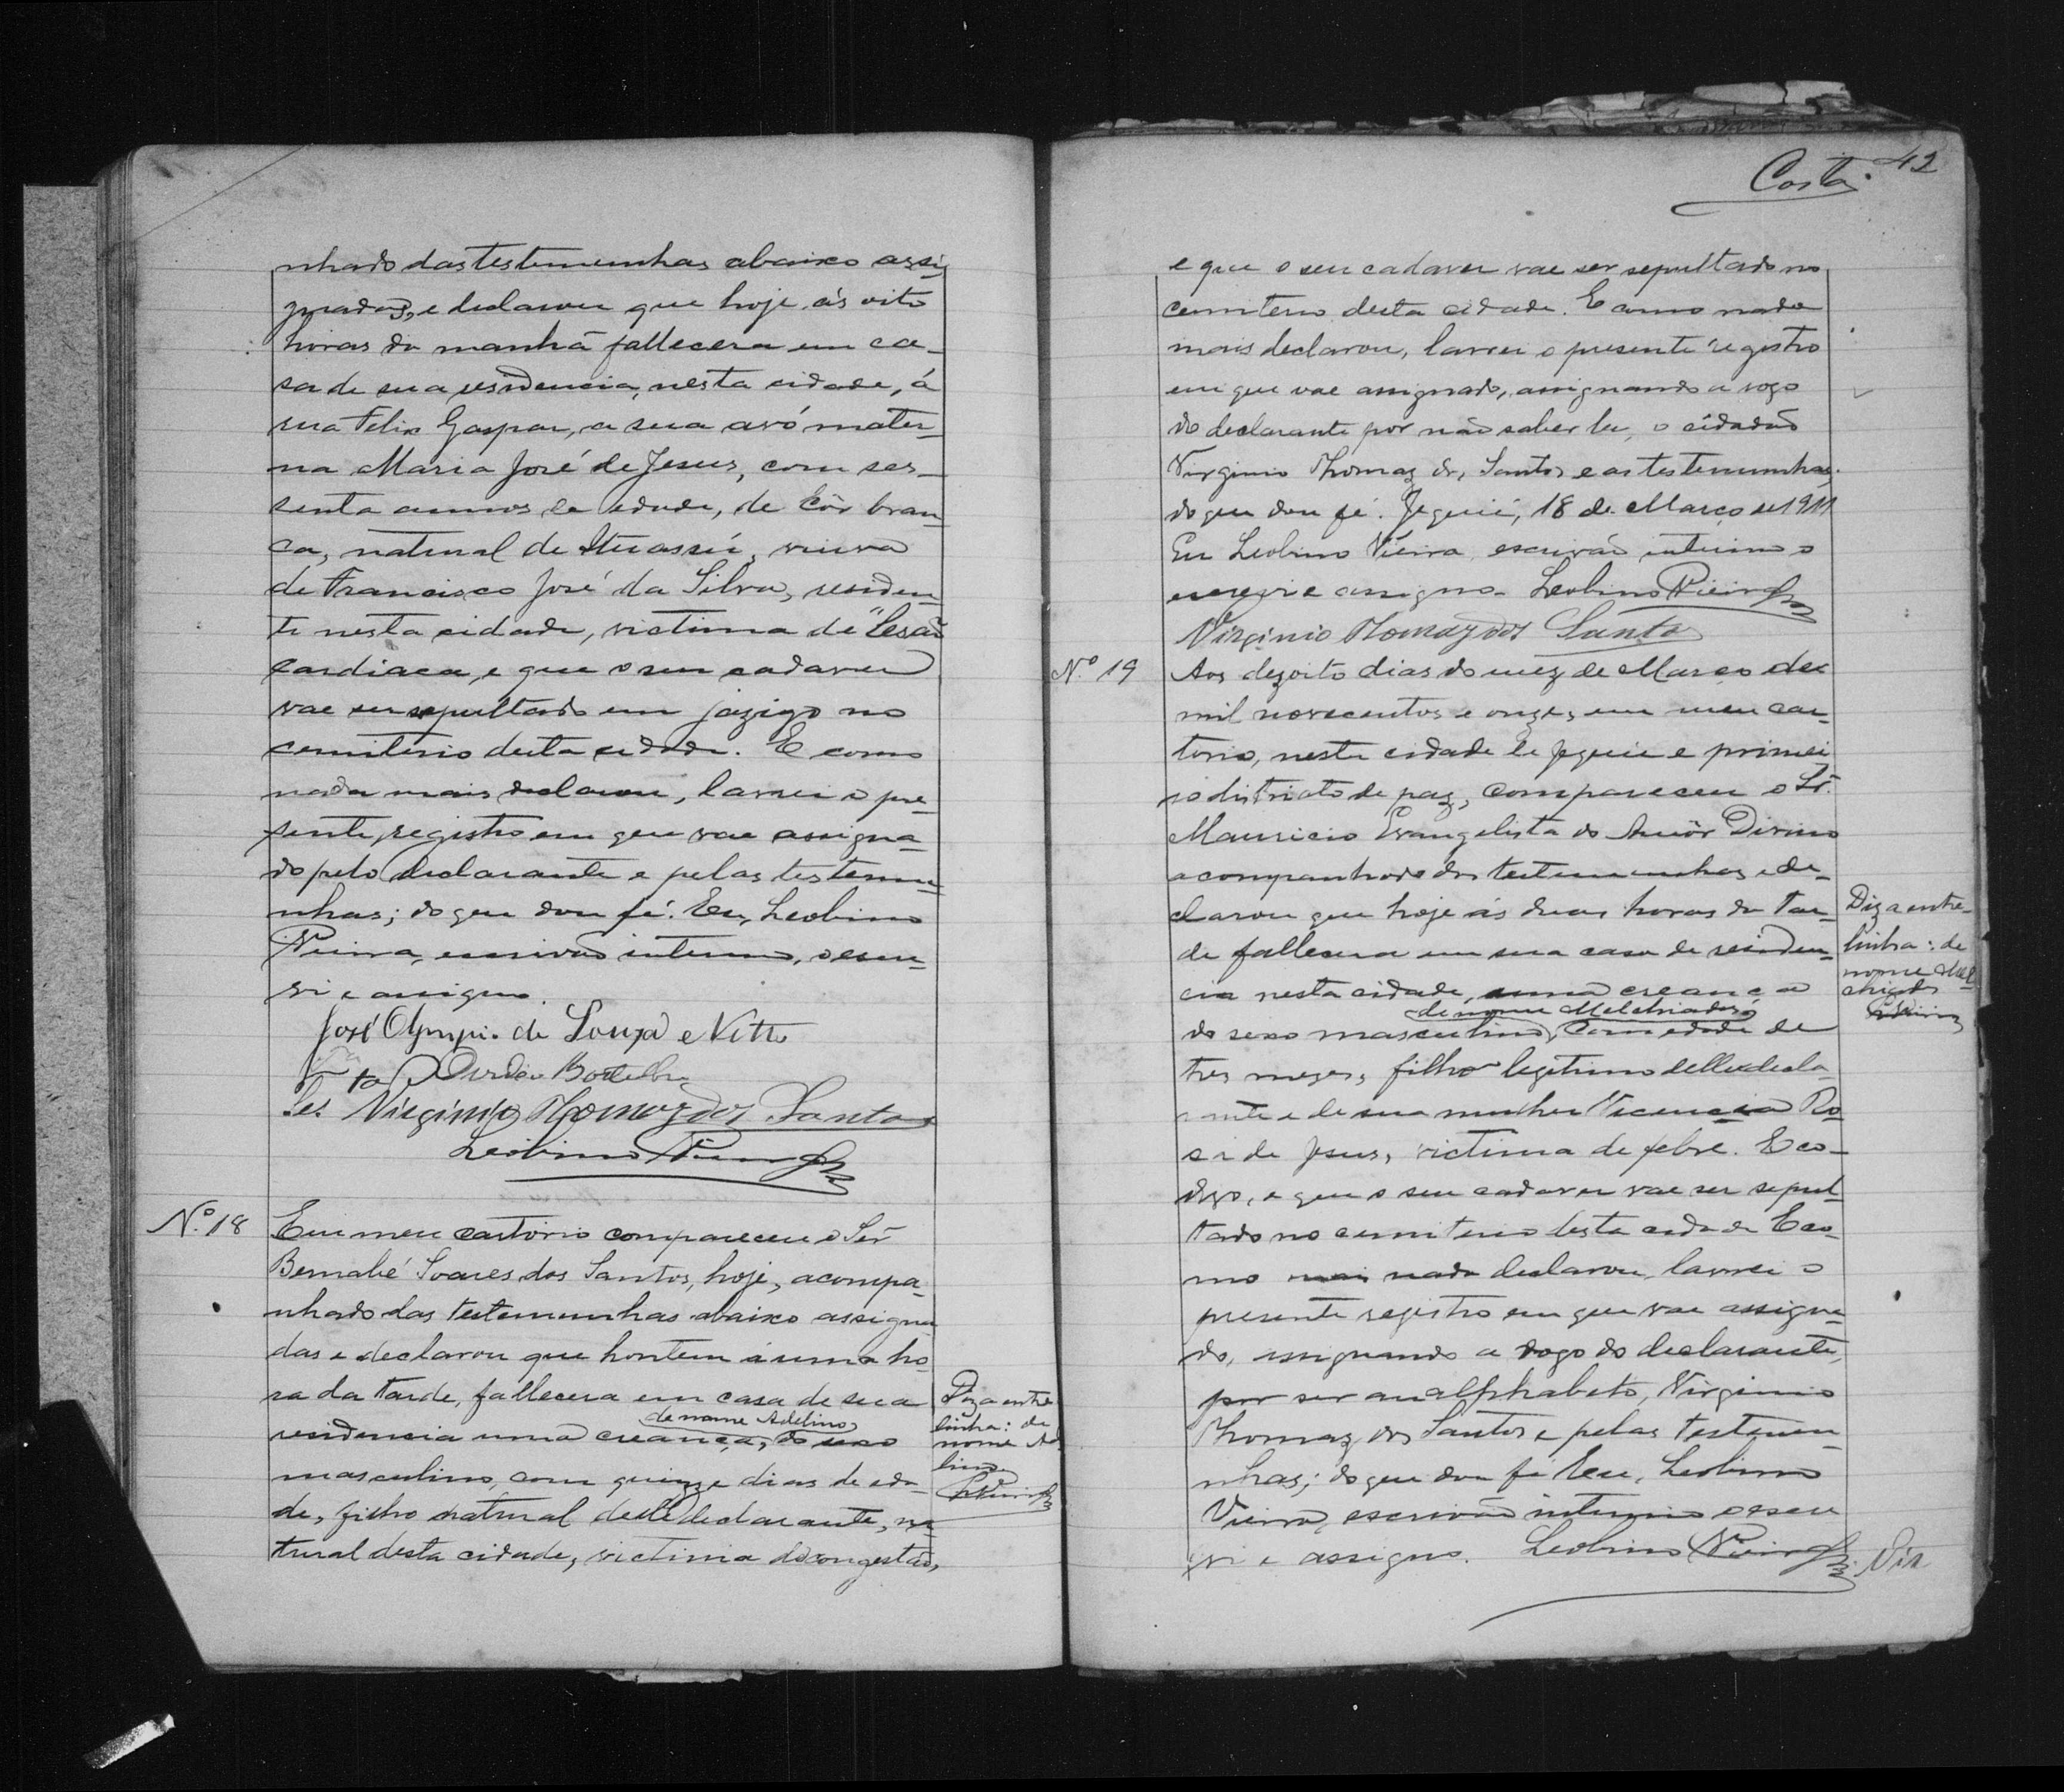 nhado das testemunhas abaixo assi-
gnadas, e declarou que hoje ás oito
horas da manhã fallecera em ca-
sa de sua residencia, nesta cidade, á
rua Felix Gaspar, a sua avó mater-
na Maria José de Jesus, com ses-
senta annos de edade, de côr bran-
ca, natural de Ituassú, viuva
de Francisco José da Silva, residen-
te nesta cidade, victima de "lesão
cardiaca, e que o seu cadaver
vae ser sepultado em jazigo no
cemiterio desta cidade. E como
nada mais declarou, lavrei o pre-
sente registro em que vae assigna-
do pelo declarante e pelas testemu-
nhas; do que dou fé. Eu, Leobino
Vieira, escrivão interino, o escre-
vi e assigno.
José Olympi. de Souza e Netto
Virginio Thomaz dos Santos
Leobino Vieira
Nº 18 Em meu cartorio compareceu o Sr
Bernabé Soares dos Santos, hoje, acompa-
nhado das testemunhas abaixo assigna-
das e declarou que hontem á uma ho-
ra da tarde, fallecera em casa de sua
de nome Adelino
residencia uma creança, do sexo
masculino, com quinze dias de eda-
de, filho natural delle declarante, na-
tural desta cidade, victima de congestão,
Diga entre
linha: de
nome Ade
lino
LVieira
Costa. 42
e que o seu cadaver vae ser sepultado no
cemiterio desta cidade. E como nada
mais declarou, lavrei o presente registro
em que vae assignado, assignando a rogo
do declarante por não saber ler, o cidadão
Virginio Thomaz dos Santos e as testemunhas
do que dou fé. Jequié, 18 de Março de 1911
Eu Leobino Vieira, escrivão interino o
escrevi e assigno. Leobino Vieira
Virginio Thomaz dos Santos
Nº 19 Aos dezoito dias do mez de Março de
mil novecentos e onze, em meu car-
torio, nesta cidade de Jequié e primei
ro districto de paz, compareceu o Sr.
Mauricio Evangelista do Amôr Divino
acompanhado das testemunhas e de-
clarou que hoje ás duas horas da tar-
de fallecera em sua casa de residen-
cia nesta cidade, uma creança
de nome Melchiades,
do sexo masculino, com edade de
tres mezes, filho legitimo delle decla-
rante e de sua mulher Vicencia Ro-
sa de Jesus, victima de febre. E co-
digo, e que o seu cadaver vae ser sepul-
tado no cemiterio desta cidade E co-
mo mais nada declarou, lavrei o
presente registro em que vae assigna-
do, assignando a rogo do declarante,
por ser analphabeto, Virginio
Thomaz dos Santos e pelas testemu-
nhas; do que dou fé Eu, Leobino
Vieira, escrivão interino o escre
vi e assigno. Leobino Vieira. Vir
Diga entre-
linha: de
nome Mel-
chiades
LVieira